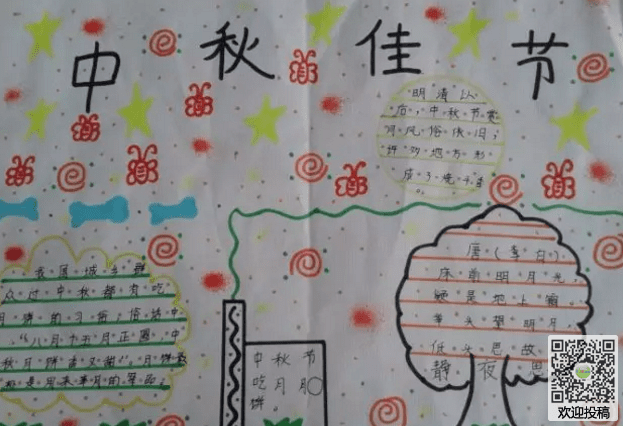 中秋佳节
明清以
后，中秋节赏
月风俗依旧，
许多地方形
成了烧斗香
。
我国城乡群
众过中秋都有吃
月饼的习俗，俗话中
“八月十五月正圆，中
秋月饼香又甜”，月饼最
初是用来
中秋节
吃月
饼。
唐（李白）
床前明月光，
疑是地上霜。
举头望明月，
低头思故
静夜思
欢迎投稿